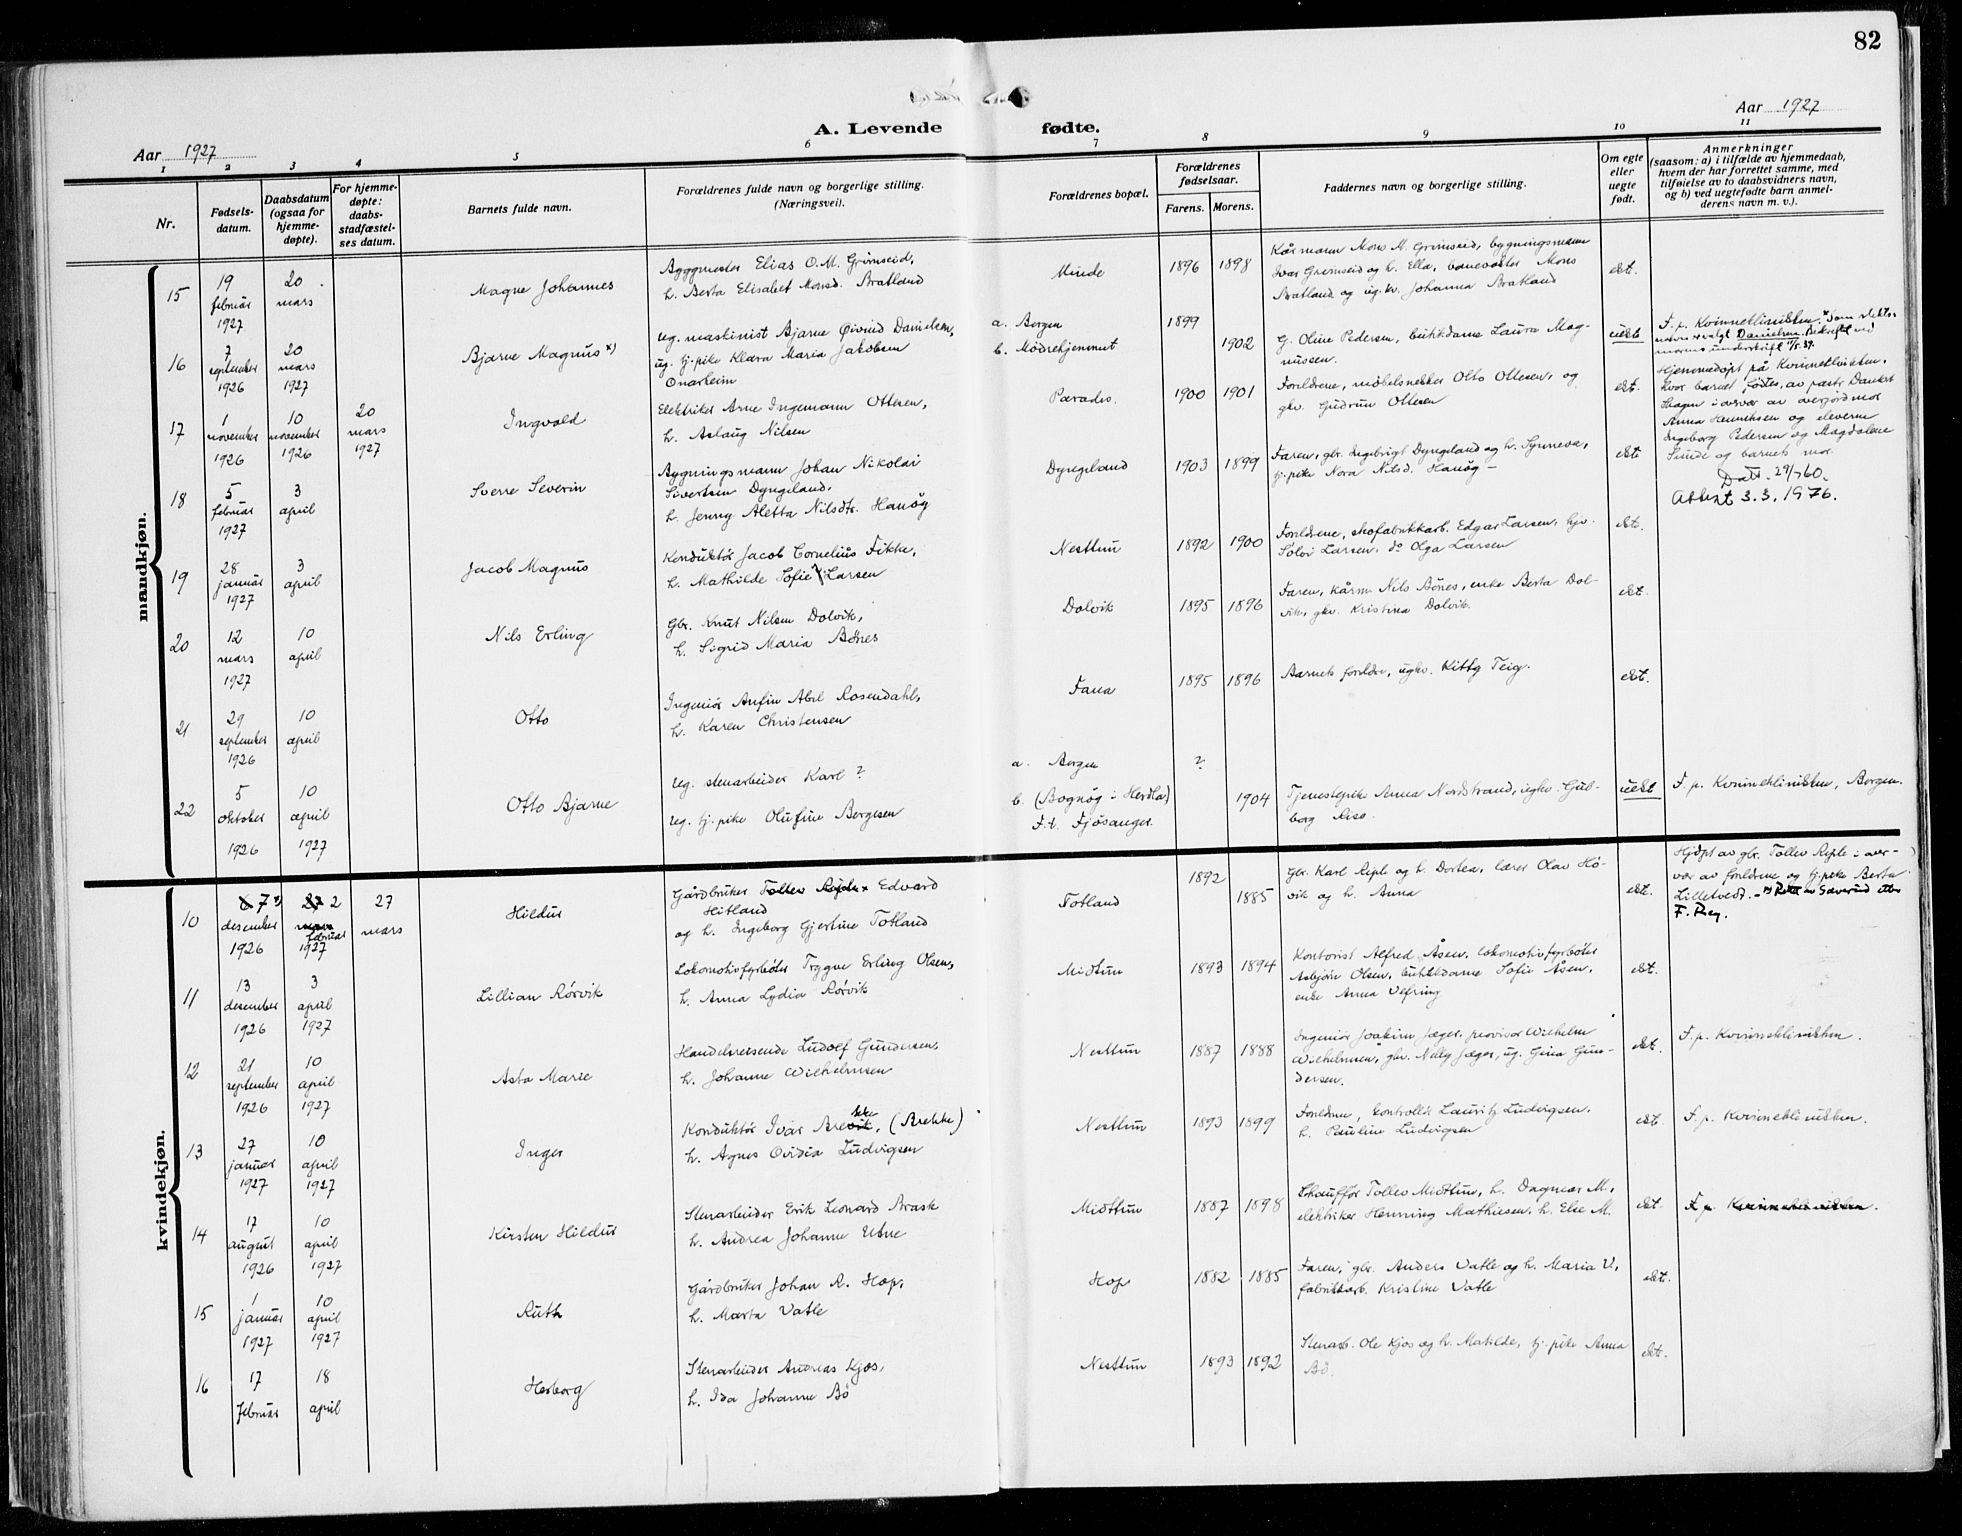 82
Aar 1927
A. Levende fødte.
Aar 1927
1 2 3 4 5 6 7 8 9 10 11
Nr.
Fødsels-
datum.
Daabsdatum
(ogsaa for
hjemme-
døpte).
For hjemme-
døpte:
daabs-
stadfæstel-
ses datum.
Barnets fulde navn.
Forældrenes fulde navn og borgerlige stilling.
(Næringsvei).
Forældrenes bopæl.
Forældrenes
fødselsaar.
Farens. Morens.
Faddernes navn og borgerlige stilling.
Om egte
eller
uegte
født.
Anmerkninger
(saasom: a) i tilfælde av hjemmedaab,
hvem der har forrettet samme, med
tilføielse av to daabsvidners navn,
og b) ved uegtefødte barn anmel-
derens navn m. v.).
mandkjøn.
15
19
februar
1927
20
mars
Magne Johannes
Byggmester Elias O. M. Grimseid,
h. Berta Elisabet Monsd. Bratland
Minde
1896 1898
Kårmann Mons M. Grimseid, bygningsmann
Ivar Grimseid og h. Ella, banevokter Mons
Bratland og ug. kv. Johanna Bratland
ekt.
16
7
september
1926
20
mars
1927
Bjarne Magnus x)
ug. maskinist Bjarne Øivind Danielsen,
ug. tj.pike Klara Maria Jakobsen
Onarheim
a. Bergen
b. Mødrehjemmet
1899
1902
G. Oline Pedersen, butikkdame Laura Mag-
nussen.
uekt
F. p. Kvinneklinikken. x Som slekts-
navn er valgt Danielsen. Bekreftet ved
morens underskrift 11/5. 39.
17
1
november
1926
10
november
1926
20
mars
1927
Ingvald
Elektriker Arne Ingemann Ottesen,
h. Aslaug Nilsen
Paradis.
1900 1901
Foreldrene, møbelsnekker Otto Ottesen, og
gkv. Gudrun Ottesen
ekt.
Hjemmedøpt på Kvinneklinikken,
hvor barnet fødtes, av pastr. Dankert
Skagen i overvær av overjordmor
Anna Henriksen og eleverne
Ingeborg Pedersen og Magdalene
Sunde og barnets mor.
18
5
februar
1927
3
april
Sverre Severin
Bygningsmann Johan Nikolai
Sivertsen Dyngeland,
h. Jenny Aletta Nilsdtr. Hanøy
Dyngeland
1903 1899
Faren, gbr. Ingebrigt Dyngeland og h. Synneva,
tj.pike Nora Nilsd. Hanøy -
ekt
Datt. 29/7 60.
Attest 3.3.1976.
19
28
januar
1927
3
april
Jacob Magnus
Konduktør Jacob Cornelius Fikke,
h. Mathilde Sofie Larsen
Nesttun
1892 1900
Foreldrene, skofabrikkarb. Edgar Larsen, hjv.
Solvi Larsen, do Olga Larsen
ekt.
20
12
mars
1927
10
april
Nils Erling
Gbr. Knut Nilsen Dolvik,
h. Sigrid Maria Bønes
Dolvik
1895 1896
Faren, kårm. Nils Bønes, enke Berta Dol-
vik, gkv. Kristina Dolvik.
ekt.
21
29
september
1926
10
april
Otto
Ingeniør Anfin Abel Rosendahl,
h. Karen Christensen
Fana
1895 1896
Barnets foreldre, ugkv. Kitty Teig.
ekt.
22
5
oktober
1926
10
april
1927
Otto Bjarne
ug. stenarbeider Karl ?
ug. tj.pike Olufine Bergesen
a. Bergen
b. (Bognøy i Herdla)
F.t. Fjøsanger.
?
1904
Tjenestepike Anna Nordstrand, ugkv. Gul-
borg Risa.
uekt
F. p. Kvinneklinikken, Bergen.
kvindekjøn.
10
7 x)
desember
1926
2
februar
1927
27
mars
Hildur
Gårdbruker Tollev Edvard
Hitland
og h. Ingeborg Gjertine Totland
Totland
1892
1885
Gbr. Karl Reple og h. Dortea, lærer Olav Hø-
vik og h. Anna
ekt.
Hjdøpt av gbr. Tollev Reple i over-
vær av foreldrene og tj.pike Berta
Lilletvedt. -
F. Reg.
11
13
desember
1926
3
april
1927
Lillian Rørvik
Lokomotivfyrbøter Trygve Erling Olsen,
h. Anna Lydia Rørvik
Midtun
1893 1894
Kontorist Alfred Åsen, lokomotivfyrbøter
Asbjørn Olsen, butikkdame Sofie Åsen,
enke Anna Vefring
ekt.
12
21
september
1926
10
april
1927
Asta Marie
Handelsreisende Ludolf Gundersen,
h. Johanne Wilhelmsen
Nesttun
1887 1888
Ingeniør Joakim Jæger, provisor Wilhelm
Wilhelmsen, gbr. Nelly Jæger, ug. Gina Gun-
dersen.
ekt.
F. p. Kvinneklinikken.
13
27
januar
1927
10
april
1927
Inger
Konduktør Ivar Brekke, (Brekke)
h. Agnes Ovidia Ludvigsen
Nesttun
1893 1899
Foreldrene, kontrollør Lauritz Ludvigsen,
h. Pauline Ludvigsen
ekt.
F. p. Kvinneklinikken.
14
17
august
1926
10
april
1927
Kirsten Hildur
Stenarbeider Erik Leonard Brask
h. Andrea Johanne Utne
Midttun
1887 1898
Chauffør Tollev Midttun, h. Dagmar M.,
elektriker Henning Mathiesen, h. Else M.
ekt.
F. p. Kvinneklinikken.
15
1
januar
1927
10
april
1927
Ruth
Gårdbruker Johan R. Hop,
h. Marta Vatle
Hop
1882 1885
Faren, gbr. Anders Vatle og h. Maria V,
fabrikkarb. Kristine Vatle
ekt.
16
17
februar
18
april
Herborg
Stenarbeider Andreas Kjos,
h. Ida Johanne Bø
Nesttun
1893 1892
Stenarb. Ole Kjos og h. Matilde, tj.pike Anna
Bø.
ekt.